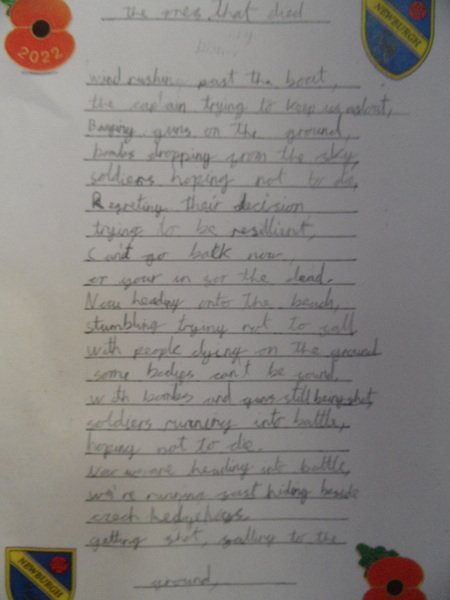 2022
the ones that died
NEWBURGH
wind rushing past the boat,
the captain trying to keep us afloat,
Banging guns on the ground,
bombs dropping from the sky,
soldiers hoping not to die,
Regreting their decision
trying to be resillient,
Cant go back now,
or your in for the dead.
Now heading onto the beach,
stumbling trying not to fall
with people dying on the ground
some bodies can't be found.
with bombs and guns still being shot,
soldiers running into battle,
hoping not to die.
Now we are heading into battle,
we're running fast hiding beside
czech hedgehogs.
getting shot, falling to the
ground,
NEWBURGH